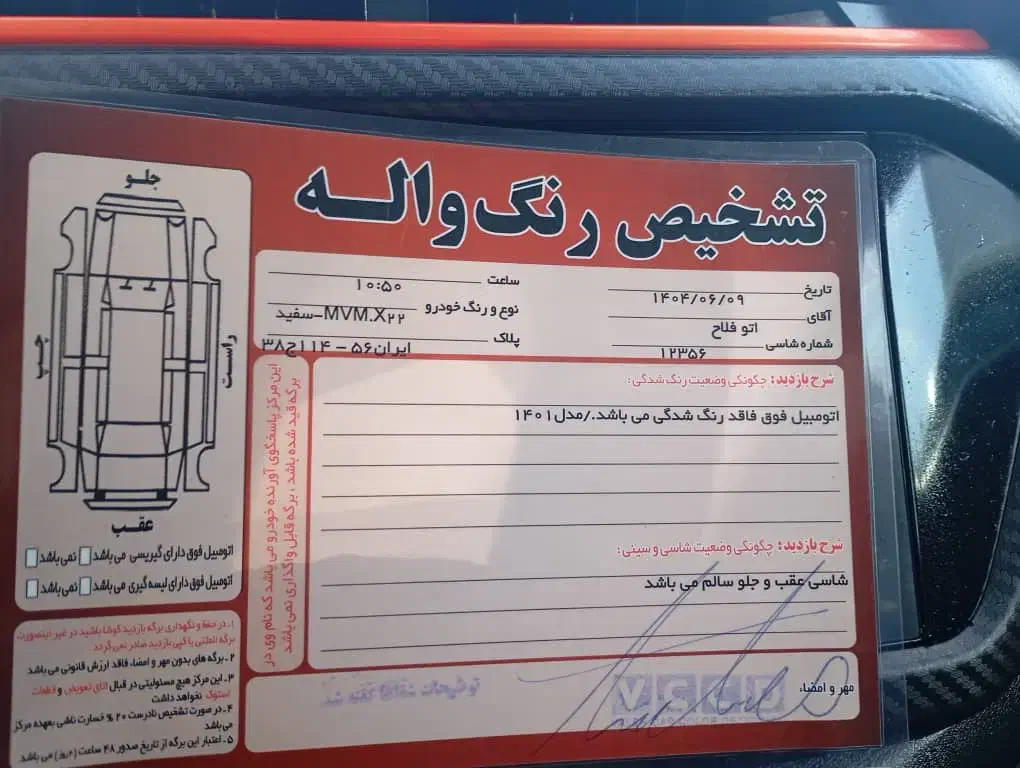 تشخیص رنگ واله
تاریخ ۱۴۰۴/۰۶/۰۹
ساعت ۱۰:۵۰
آقای اتو فلاح
نوع و رنگ خودرو MVM.X۲۲-سفید
شماره شاسی ۱۲۳۵۶
پلاک ایران۵۶ - ۱۱۴ج۳۸
شرح بازدید: چگونگی وضعیت رنگ شدگی:
اتومبیل فوق فاقد رنگ شدگی می باشد./مدل۱۴۰۱
شرح بازدید: چگونگی وضعیت شاسی و سینی:
شاسی عقب و جلو سالم می باشد
مهر و امضاء
توضیحات شفاها گفته شد
این مرکز پاسخگوی آورنده خودرو می باشد که نام وی در
برگه قید شده باشد ، برگه قابل واگذاری نمی باشد
جلو
راست
چپ
عقب
اتومبیل فوق دارای گیریسی می باشد نمی باشد
اتومبیل فوق دارای لیسه گیری می باشد نمی باشد
۱- در حفظ و نگهداری برگه بازدید کوشا باشید در غیر اینصورت
برگه المثنی یا کپی بازدید صادر نمی گردد
۲- برگه های بدون مهر و امضاء، فاقد ارزش قانونی می باشد
۳- این مرکز هیچ مسئولیتی در قبال اتاق تعویض و قطعات
استوک نخواهد داشت
۴- در صورت تشخیص نادرست ۲۰ % خسارت ناشی بعهده مرکز
می باشد
۵- اعتبار این برگه از تاریخ صدور ۴۸ ساعت (۲روز) می باشد